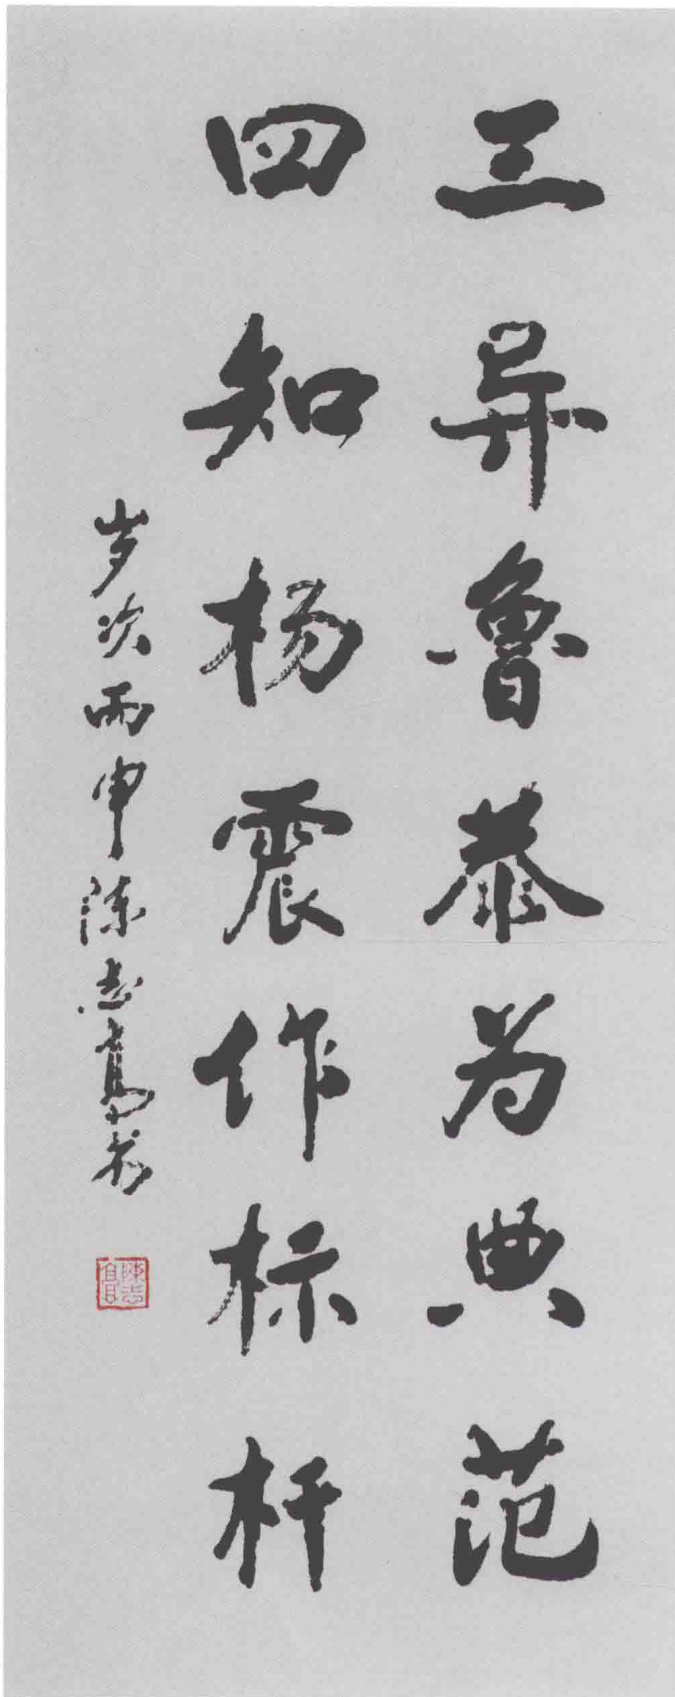 三异鲁恭为典范
四知杨震作标杆
岁次丙申陈志高书